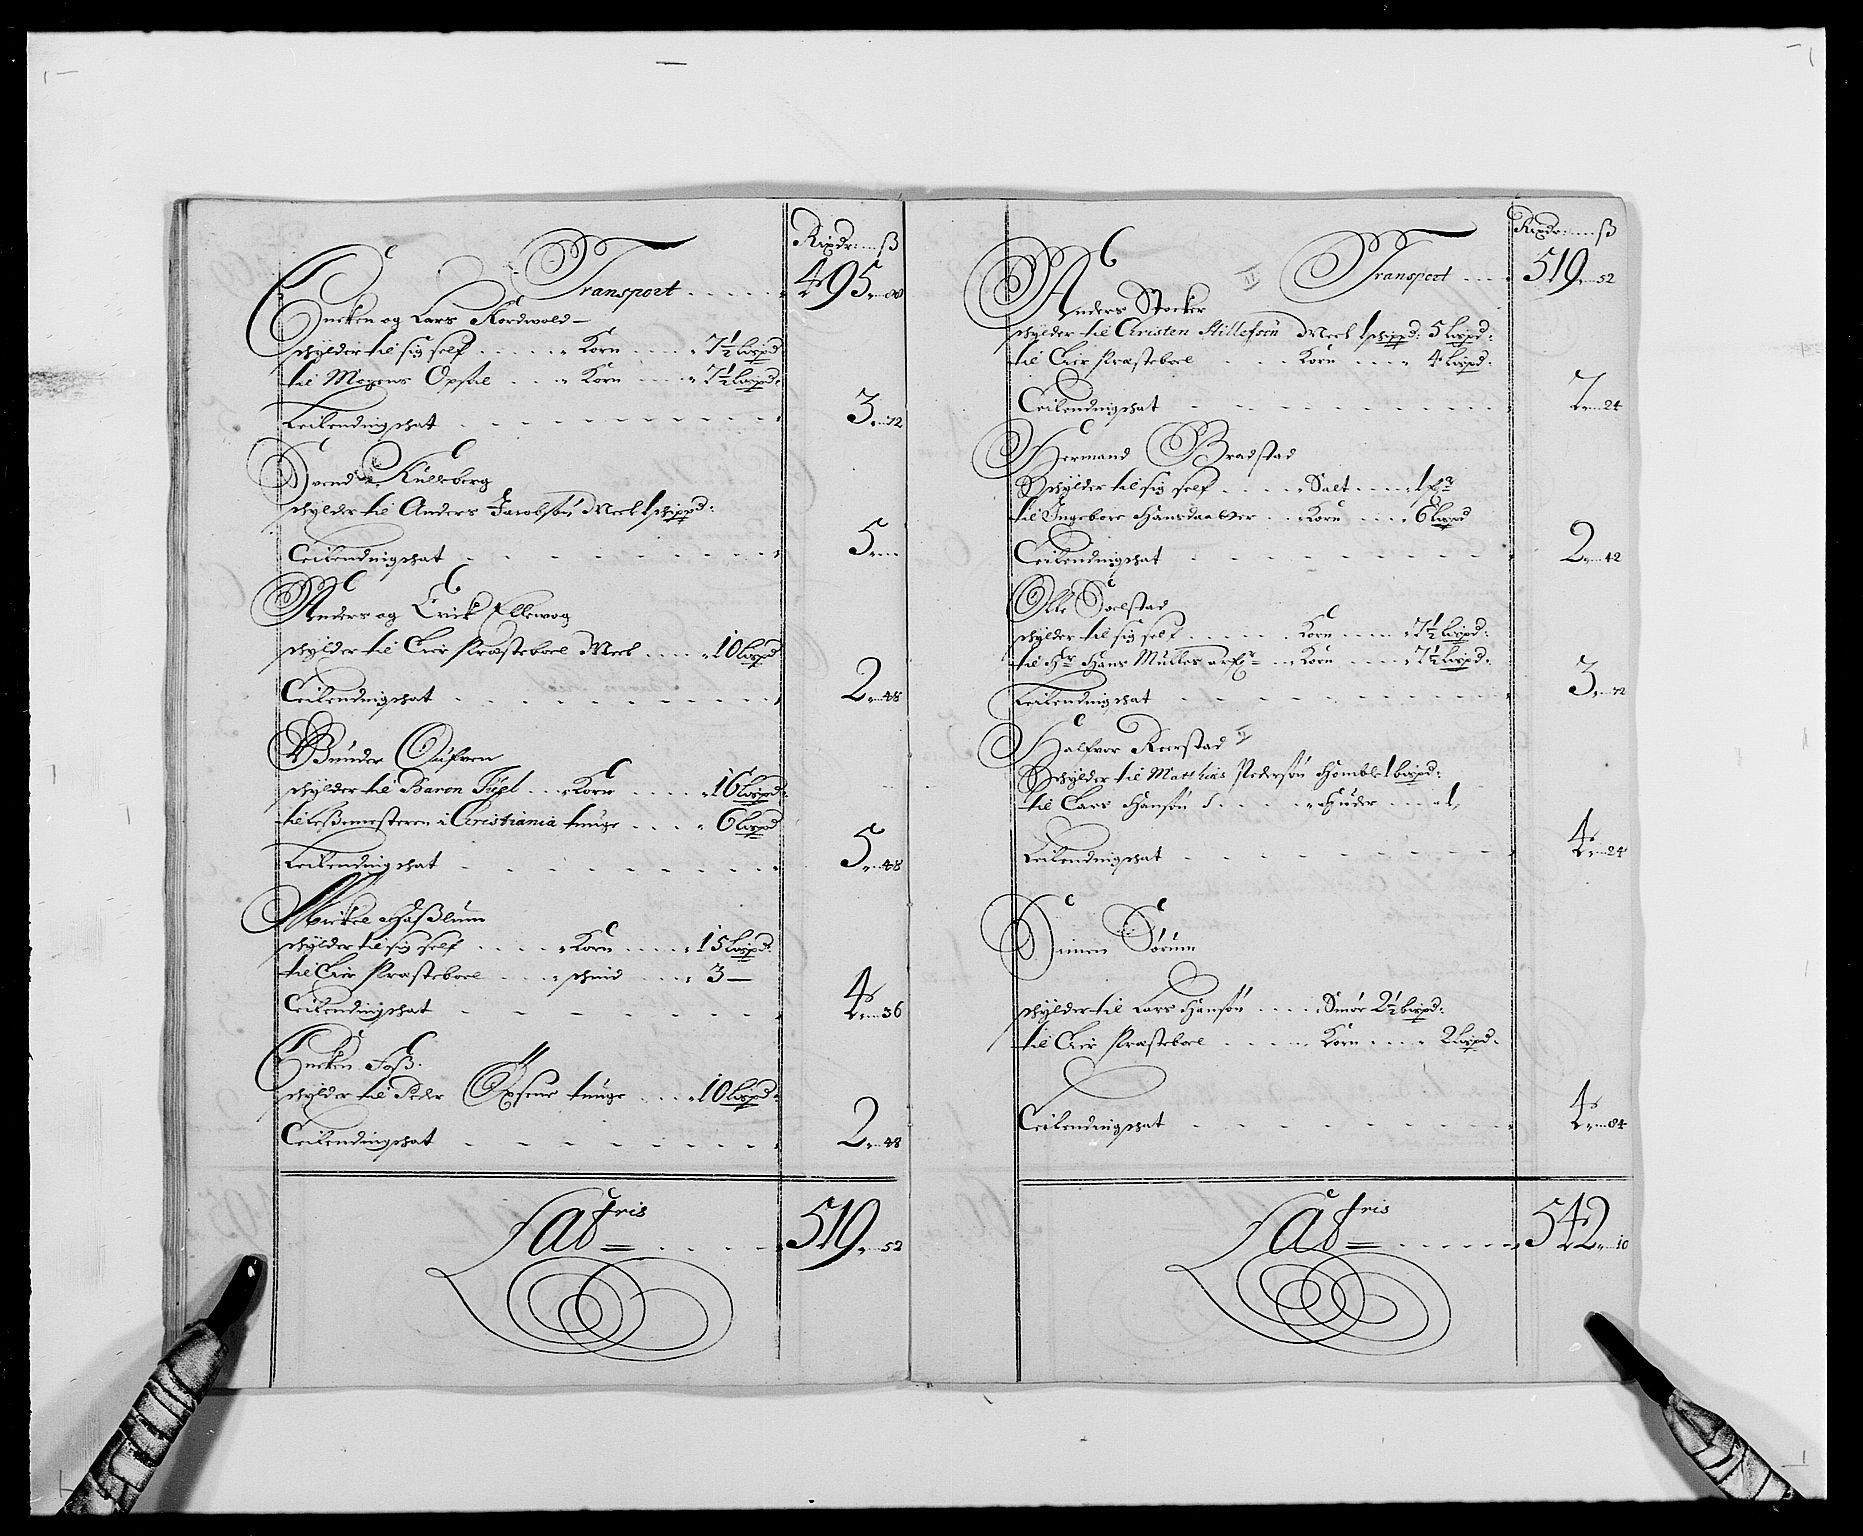 Rixdr: ß
Transport 495 88
og Lars Nordwold
schylder til sig self Korn 7½ lispd
til Mogens Opstal Korn 7½ lispd
Leilendingschat 3 72
Svend Kulleberg
schylder til Anders Jacobsøn Meel 1 schippd:
Leilendingschat 5
Anders og Erick Ellewog
schylder til Præsteboel Meel 10 lispd
Leilendingschat 2 48
Gunder
schylder til Baron Juel Korn 16 lispd:
til i Christiania tunge 6 lispd
Leilendingschat 5 48
Mickel Haßlum
schylder til sig self Korn 15 lispd:
til Præsteboel schind 3
Leilendingschat 4 36
Foß:
schylder til Peder tunge 10 lispd:
Leilendingschat 2 48
Lateris 519 52
Rixdr: ß
Transport 519 52
Anders Stocker
schylder til Christen Meel 1 schippd: 5 lispd:
til Præsteboel Korn 4 lispd:
Leilendingschat 7 24
Hermand Bradstad
Schylder til sig self Salt 1
til Ingebore Hansdaatter Korn 6 lispd
Leilendingschat 2 42
Olle
schylder til sig self Korn 7½ lispd:
til Hr Hans Mülles Korn 7½ lispd:
Leilendingschat 3 72
Halfvor Keerstad
Schylder til Matthias Pedersøn Homble 1 bispd:
til Lars Hansøn Huder 1
Leilendingschat 4 24
Simen Sørum
schylder til Lars Hansøn Smør 2½ bispd:
til Præsteboel Korn 2 lispd.
Leilendingschat 4 84
Lateris 542 10